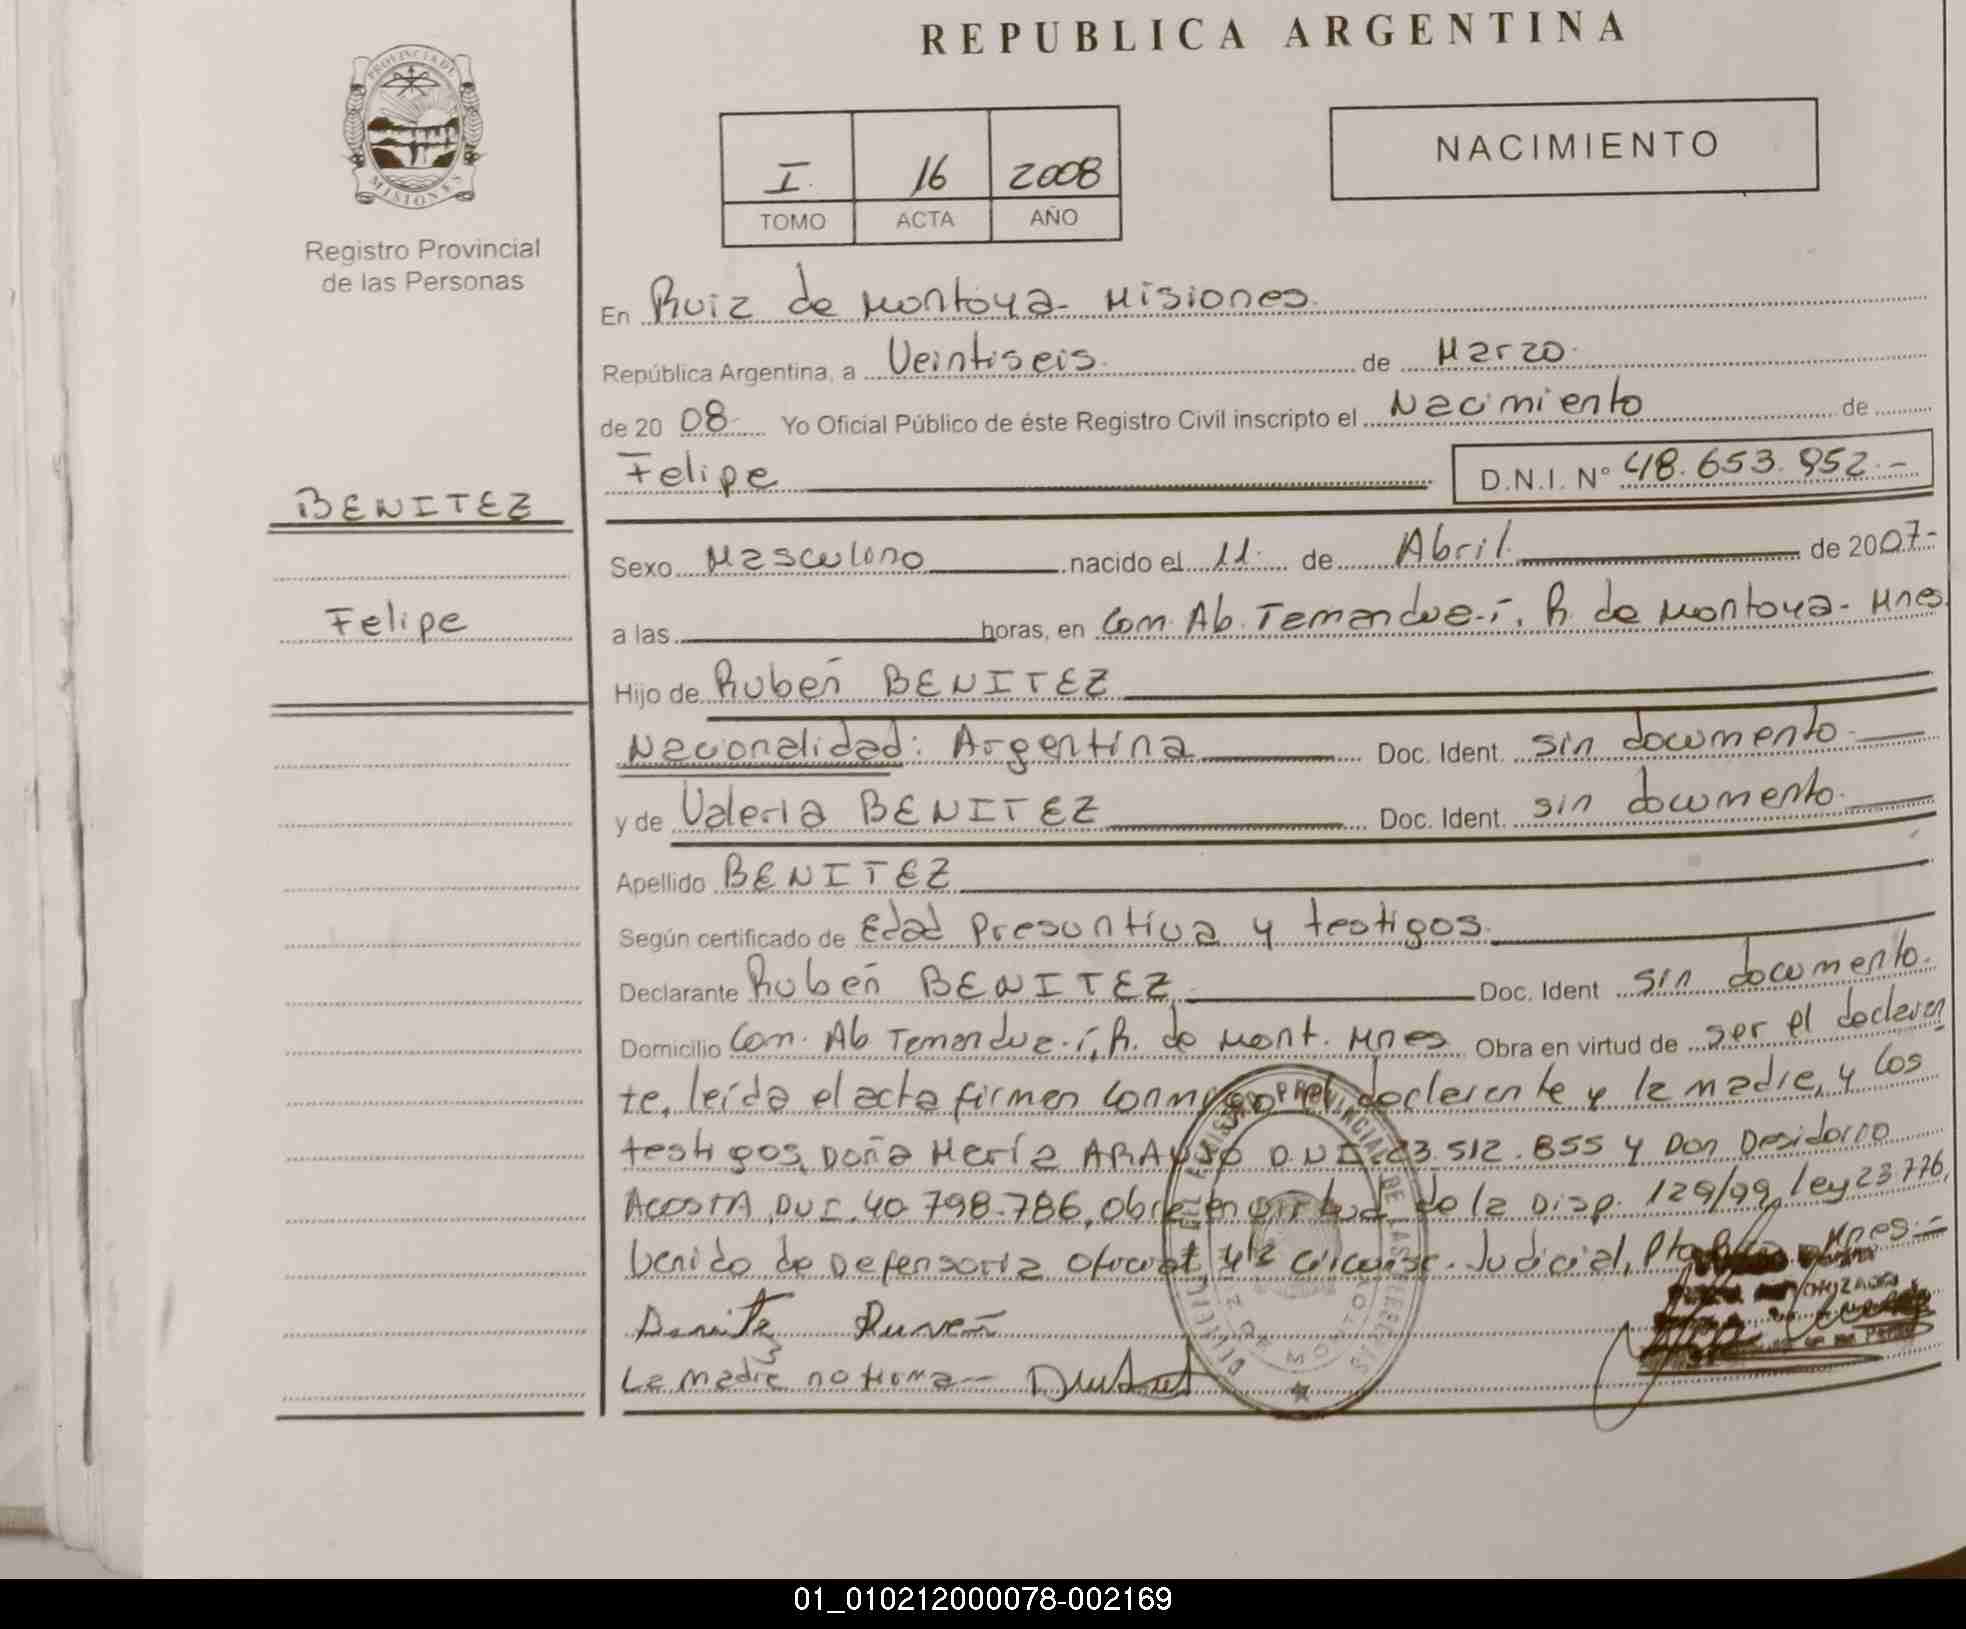 REPUBLICA ARGENTINA
PROVINCIA DE
MISIONES
Registro Provincial
de las Personas
I. 16 2008
TOMO ACTA AÑO
NACIMIENTO
En Ruiz de Montoya - Misiones.
República Argentina, a Veintiseis. de Marzo.
de 20 08 Yo Oficial Público de éste Registro Civil inscripto el Nacimiento de
Felipe D.N.I. N° 48.653.952.-
BENITEZ
Felipe
Sexo Masculino nacido el 11. de Abril. de 2007-
a las horas, en Com. Ab. Temandue-í, R. de Montoya - Mnes.
Hijo de Rubén BENITEZ
Nacionalidad: Argentina Doc. Ident. sin documento.
y de Valeria BENITEZ Doc. Ident. sin documento.
Apellido BENITEZ
Según certificado de Edad Presuntiva y testigos.
Declarante Rubén BENITEZ Doc. Ident sin documento.
Domicilio Com. Ab Temandue-í, R. de Mont. Mnes Obra en virtud de ser el declaran
te, leída el acta firman conmigo el declarante y la madre, y los
testigos, Doña María ARAUJO D.N.I. 23.512.855 y Don Desidorio
ACOSTA, DNI. 40.798.786, obra en virtud de la Disp. 129/99, ley 23.776,
venido de Defensoria oficial, 4ta circunsc. Judicial, Pto Mnes.-
Benitez Ruven
La madre no firma-
DE MONTOYA
01_010212000078-002169